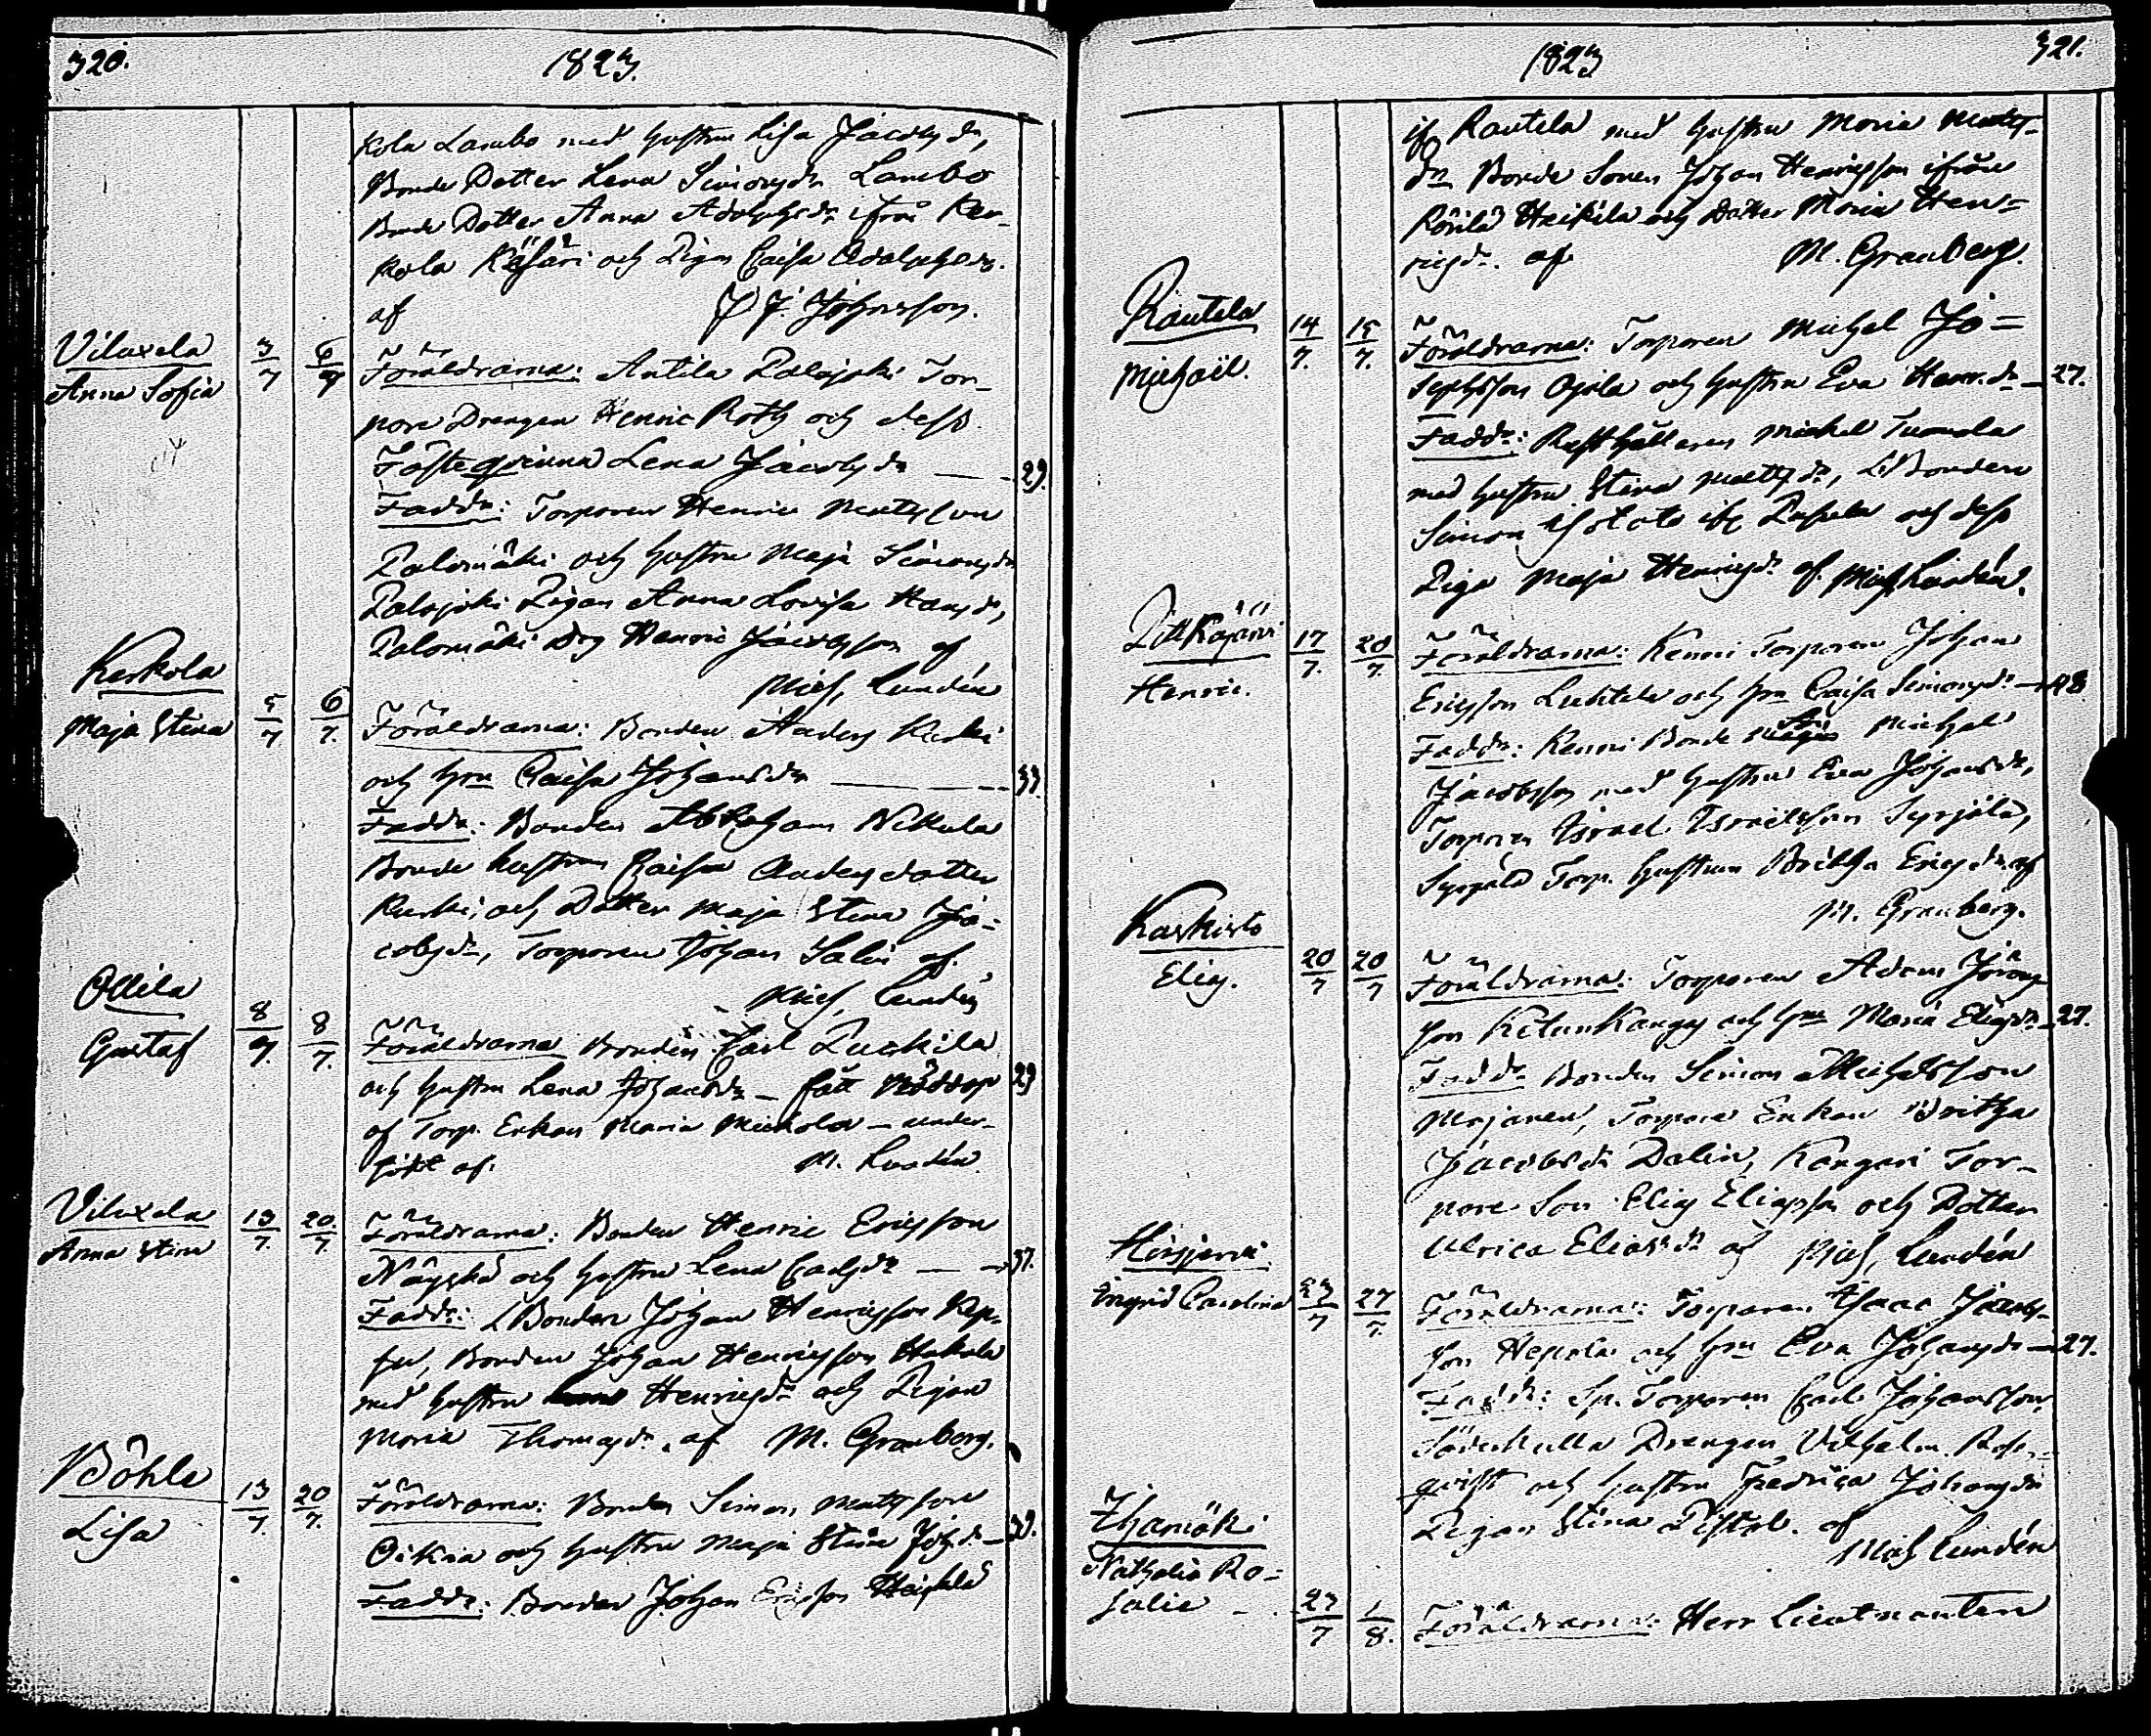 320.
1823.
Kola Lambo med hustru Lisa Jacobsdr,
Bonde Dotter Lena Simonsdr Lambo
Bonde Dotter Anna Adolphsdr ifrån Ker-
kola Käsäri och Pigan Caisa Adolphsdr.
af J Johnsson.
Viluxela
Anna Sofia
3/7
6/7
Föräldrarna: Antila Palojoki Tor-
pare Drengen Henric Roth och dess
Fästeqvinna Lena Jacobsdr 29.
Faddr: Torparen Henric Mattsson
Palomäki och hustru Maja Simonsdr
Palojoki Pigan Anna Lovisa Hansdr,
Palomäki Drg Henric Jacobsson af
Mich, Lundén
Kerkola
Maja Stina
5/7
6/7.
Föräldrarna: Bonden Anders Kurki
och hru Caisa Johansdr 33.
Faddr: Bonden Abraham Nikula
Bonde hustrun Caisa Andersdotter
Kurki, och Dotter Maja Stina Ja-
cobsdr, Torparen Johan Salin af.
Mich, Lundén
Ollila
Gustaf
8/7.
8/7.
Föräldrarna Bonden Carl
och hustru Lena Johansdr - fått Nöddop
af Torp. Enkan Maria Mickola - under-
sökt af. M. Lundén
Viluxela
Anna Stina
13/7.
20/7.
Föräldrarna: Bonden Henric Ericsson
och hustru Lena Carlsdr 37.
Faddr: Bonden Johan Henricsson
Bonden Johan Henricsson Hakola
med hustru Henricsdr och Pigan
Maria Thomasdr. af M. Granberg.
Böhle
Lisa
13/7.
20/7.
Föräldrarna: Bonden Simon Mattsson
Oikia och hustru Maja Stina Johsdr
Faddr: Bonden Johan Ericsson Heikkilä
1823
321.
ifr Rautela med hustru Maria Matts-
dr Bonde Sonen Johan Henricsson ifrån
Heikilä och Dotter Maria Hen-
ricsdr. af M. Granberg.
Rautela
Michaël.
14/7.
15/7.
Föräldrarna: Torparen Michel Jo-
sephsson Ojala och hustru Eva Henr.dr 27.
Faddr: Rusthållaren Michel Tuomola
med hustru Stina Mattsdr, Bonden
Simon Isotalo ifr och dess
Piga Maja Henricsdr af. Mich Lundén.
Pitkäjärvi
Henric.
17/7.
20/7.
Föräldrarna: Kenni Torparen Johan
Ericsson Luhtela och hru Caisa Simonsdr 48
Faddr: Kenni Bonde Michel
Jacobsson med hustru Eva Johansdr,
Torparen Israel Israelsson Syrjälä,
Syrjälä Torp. hustrun Britha Ericsdr af
M. Granberg.
Kaskisto
Elias.
20/7
20/7
Föräldrarna: Torparen Adam Jörans-
son Ketunkangas och hru Maria Eliasdr 27.
Faddr Bonden Simon Michelsson
Mojanen, Torpare Enkan Britha
Jacobsdr Dalin, Kangari Tor-
pare Son Elias Eliasson och Dotter
Ulrica Eliasdr af Mich, Lundén
Hirsjärvi
Ingrid Carolina
23/7
27/7.
Föräldrarna: Torparen Isaac Jacobs-
son Hepola och hru Eva Johansdr 27.
Faddr: Sp. Torparen Carl Johansson
Söderkulla Drengen Vilhelm Rosen-
qvist och hustru Fredrica Johansdr
Pigan Stina af
Mich Lundén
Ihamäki
Nathalia Ro-
salie
27/7
1/8.
Föräldrarna: Herr Lieutnanten